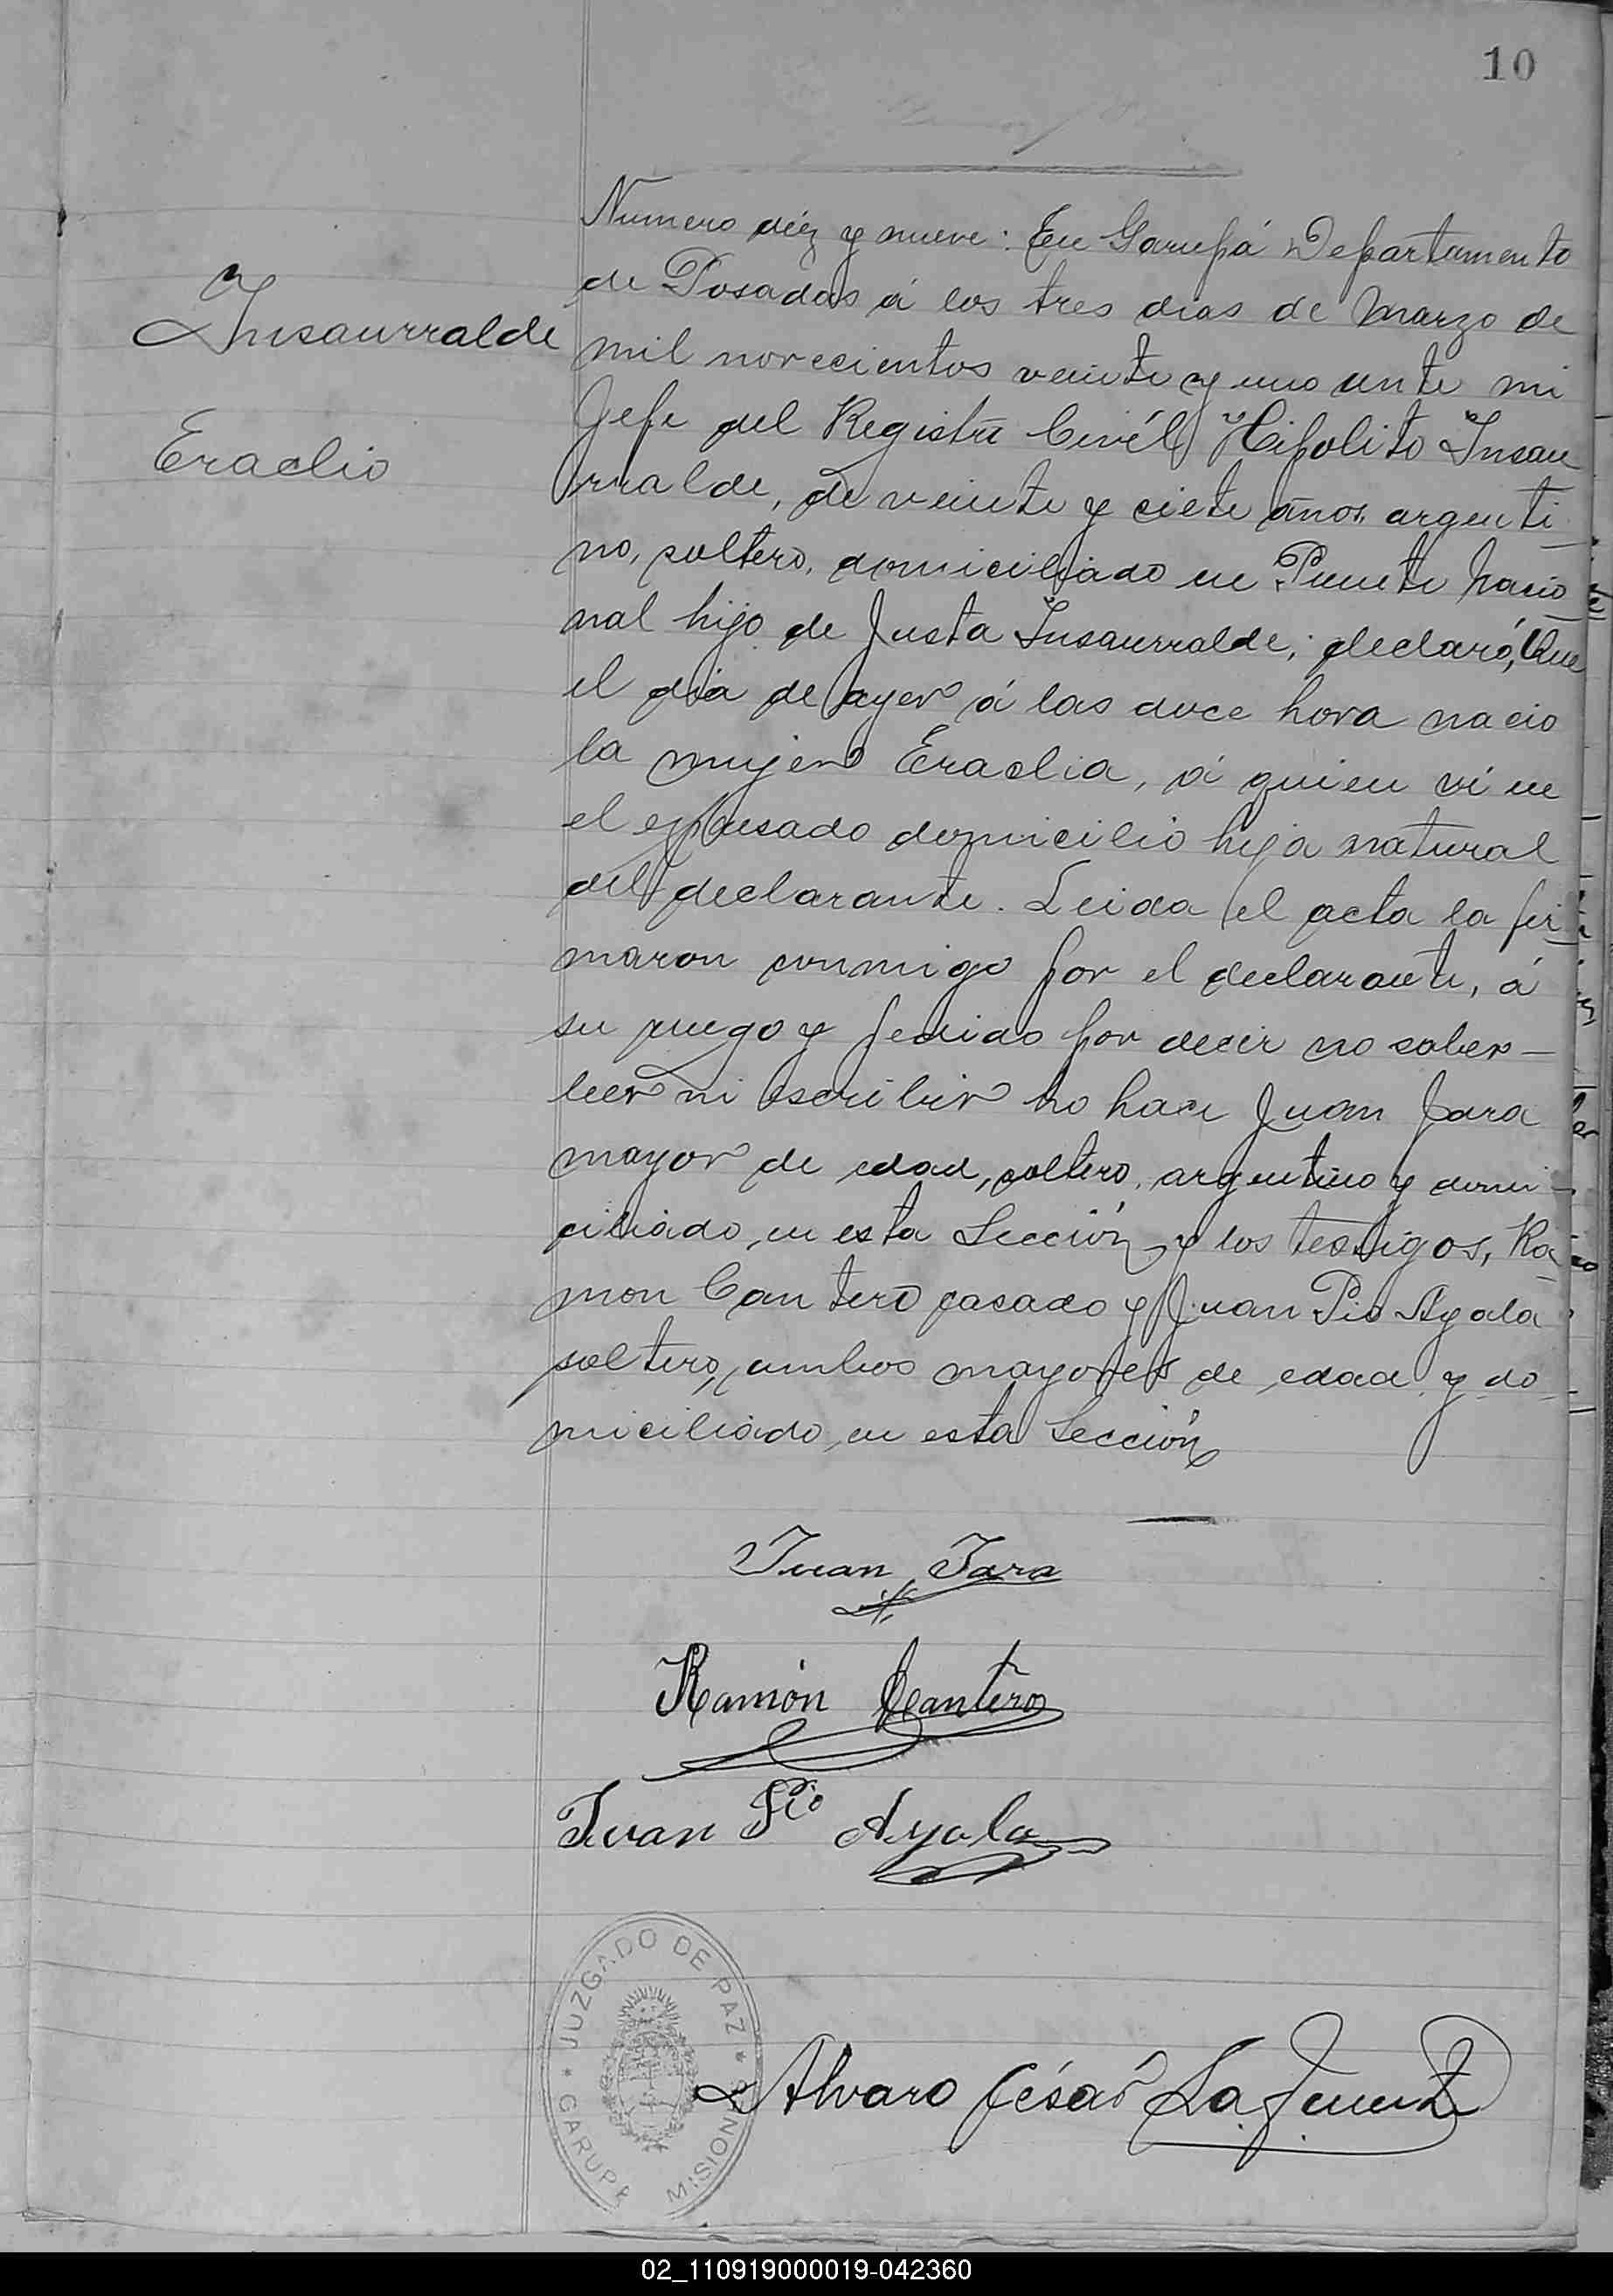 10
Insaurralde
Eraclio
Numero diéz y nueve: En Garupá Departamento
de Posadas á los tres dias de Marzo de
mil novecientos veinte y uno ante mi
Jefe del Registro Civél Hipolito Insau
rralde, de veinte y ciete años, argenti
no, soltero, domiciliado en Puente Nacio
nal hijo de Justa Insaurralde; declaró, Que
el dia de ayer á las doce hora nacio
la mujer Eraclia, á quien ví en
el expresado domicilio hija natural
del declarante. Leida el acta la fir
maron conmigo por el declarante, á
su ruego y pedido por decir no saber—
leer ni escribir lo hace Juan Jara
mayor de edad, soltero, argentino y domi-
ciliado, en esta Sección y los testigos, Ra
mon Cantero casado y Juan Pio Ayala
soltero, ambos mayores de edad y do
miciliado, en esta Sección
Juan Jara
Ramón Cantero
Juan Pio Ayala
JUZGADO DE PAZ * MISIONES
* GARUPA
Alvaro César La Fuente
02_110919000019-042360